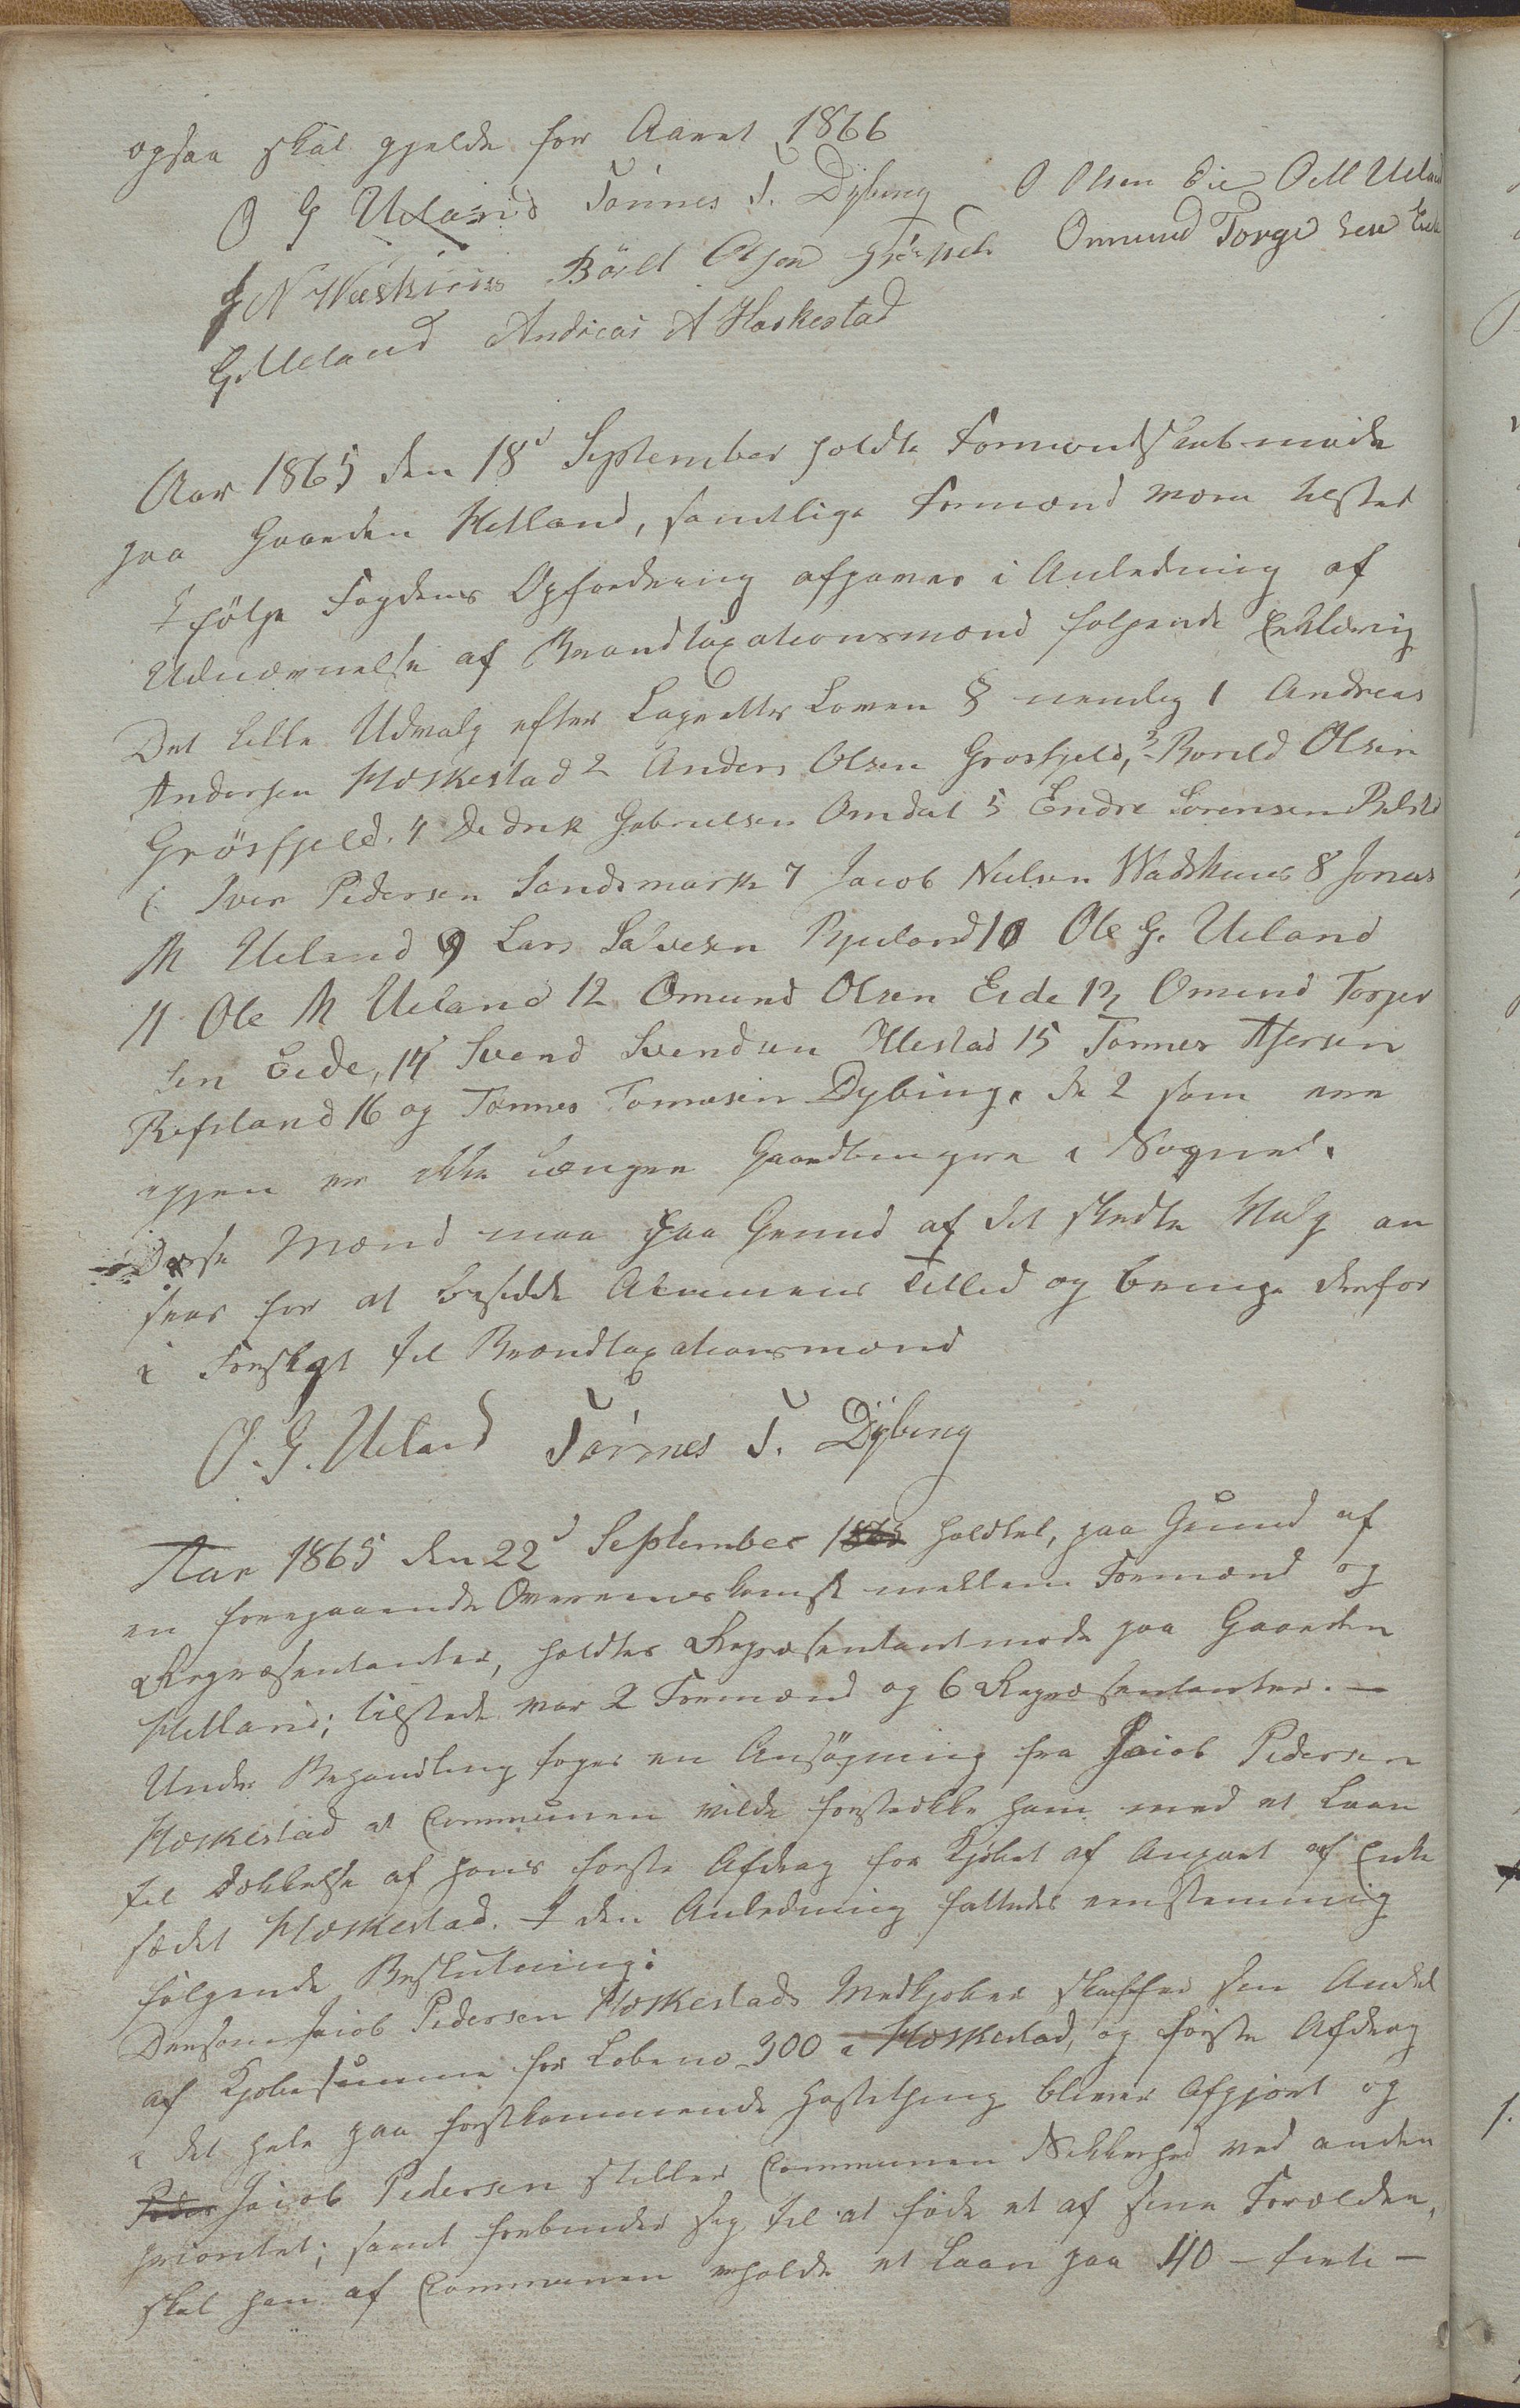 ogsaa skal gjelde for Aaret 1866
O G Ueland Tönnes T. Dybing O Olsen Eie O M Ueland
J N Waskuus Börlt Olsen Grösfjeld Ommund Torge sen Eide
G. Ueland Andreas A Haskestad
Aar 1865 den 18d September holdte Formandskabmøde
paa Gaarden Hetland, samtlige Formænd vare tilsted
Ifölge Fogdens Opfordring afgaves i Anledning af
Udnævnelse af Brandtaxationsmænd følgende Erklæring
Det lille Udvalg efter Lagretts Loven § nemlig 1 Andreas
Andersen Hæskestad 2 Anders Olsen Grosfjeld, 3 Borild Olsen
Grösfjeld. 4 Dedrik Gabrielsen Omdal 5 Endre Sorensen
6 Iver Pedersen Sandsmark 7 Jacob Nielsen Wadshuus 8 Jonas
M Ueland 9 Lars Salvesen Bjuland 10 Ole G. Ueland
11 Ole M Ueland 12 Omund Olsen Eide 13 Omund Torger
sen Eide, 14 Svend Svendsen Illestad 15 Tonnes Asersen
Refsland 16 og Tønnes Tomæsen Dybing. De 2 som ere
igjen er ikke længere Gaardbrugere i Sognet.
Disse Mænd maa paa Grund af det skedte Valg an
sees for at besidde Almeens Tillid og bringe derfor
i Forslagt til Brandtaxationsmænd
O. G. Ueland Tönnes T. Dybing
Aar 1865 den 22d September holdtes, paa Grund af
en foregaaende Overenskomst mellem Formænd og
Repræsentanter, holdtes Repræsentantmøde paa Gaarden
Hetland; tilstede var 2 Formænd og 6 Repræsentanter. —
Under Behandling toges en Ansögning fra Jacob Pedersen
Hæskestad at Communen vilde forstrække ham med et Laan
til Dækkelse af hans første Afdrag for Kjøbet af Anpart af Enke
sædet Hæskestad. I den Anledning fattedes eenstemmig
følgende Beslutning:
Dersom Jacob Pedersen Hæskestads Medkjøber skaffer sin Andel
af Kjøbesumme for Løbeno 300 i Hæskestad, og første Afdrag
i det hele paa førstkommende Høstething bliver Afgjort og
Peder Jacob Pedersen stiller Communen Sikkerhed ved anden
prioritet; samt forbinder sig til at føde et af sine Forældre,
skal han af Communen erholde et Laan paa 40 — firti —